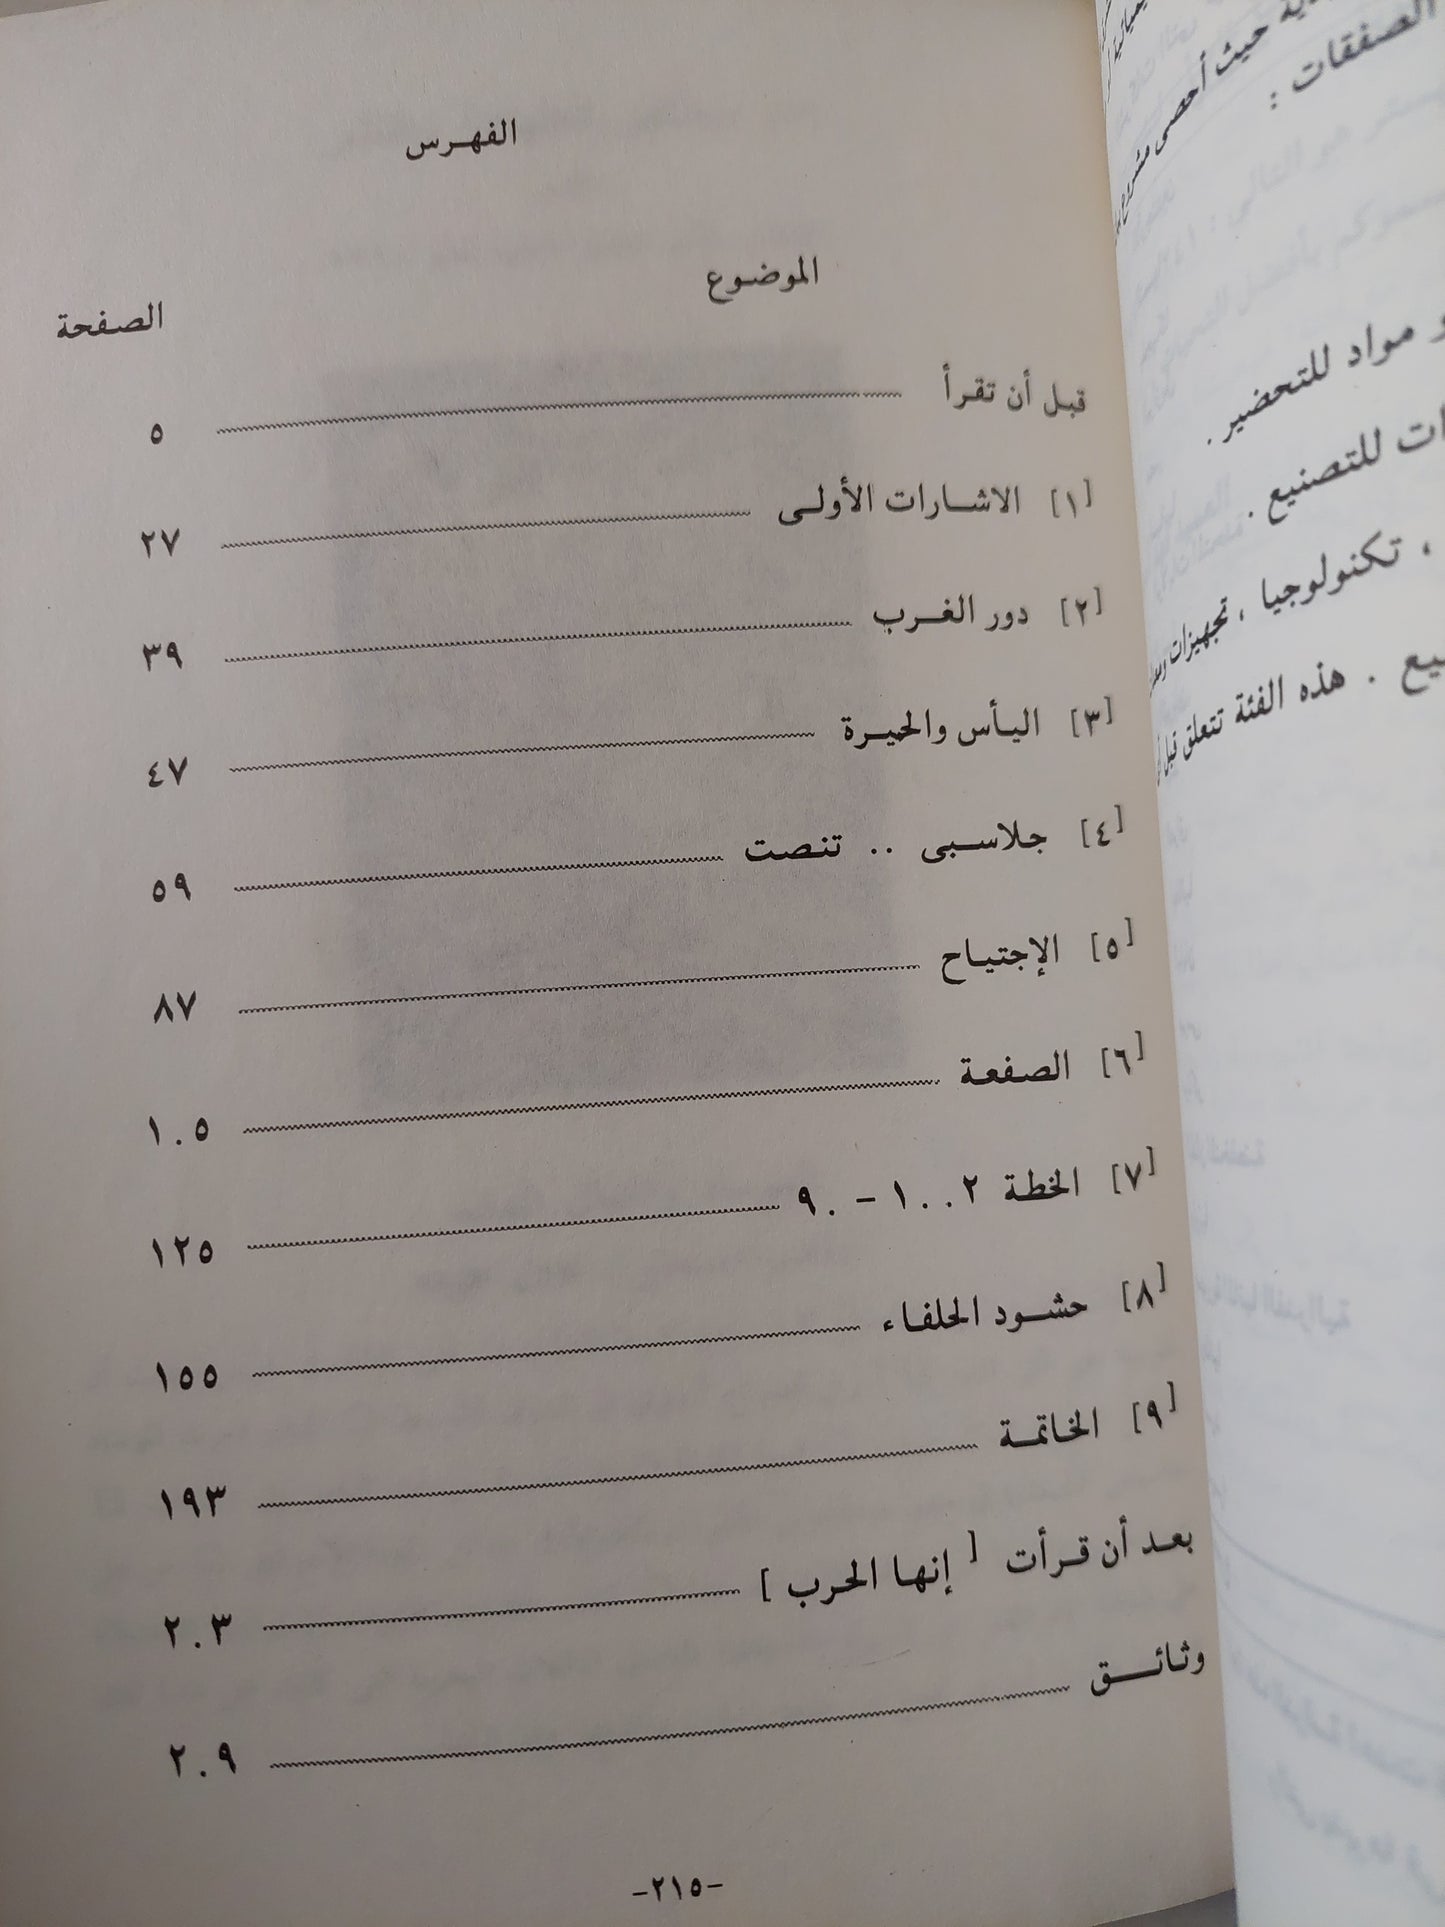 الفهرس
الموضوع
الصفحة
قبل أن تقرأ ٥
[١] الاشارات الأولى ٢٧
[٢] دور الغرب ٣٩
[٣] اليأس والحيرة ٤٧
[٤] جلاسبى .. تنصت ٥٩
[٥] الإجتياح ٨٧
[٦] الصفعة ١٠٥
[٧] الخطة ١٠٠٢ - ٩٠ ١٢٥
[٨] حشود الحلفاء ١٥٥
[٩] الخاتمة ١٩٣
بعد أن قرأت [ إنها الحرب ] ٢٠٣
وثائق ٢٠٩
-٢١٥-
حيث أحصى مشروع
الصفقات :
و مواد للتحضير .
للتصنيع .
، تكنولوجيا ، تجهيزات
. هذه الفئة تتعلق قبل